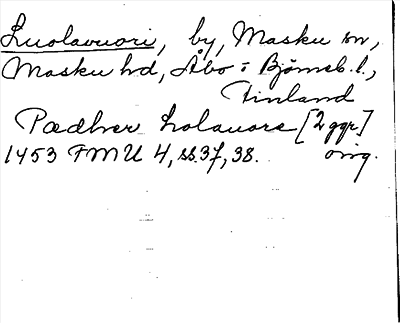 Luolavuori, by, Masku sn,
Masku hd, Åbo = Björneb. l.,
Finland
Pædher Lolauore [2 ggr]
1453 FMU 4, ss. 37, 38. orig.